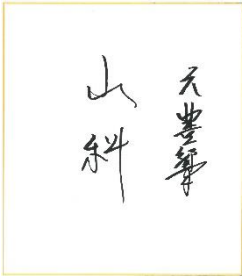 元豊響
山科